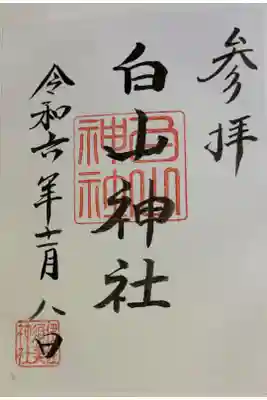 参拝
白山神社
令和六年十一月八日
白山神社